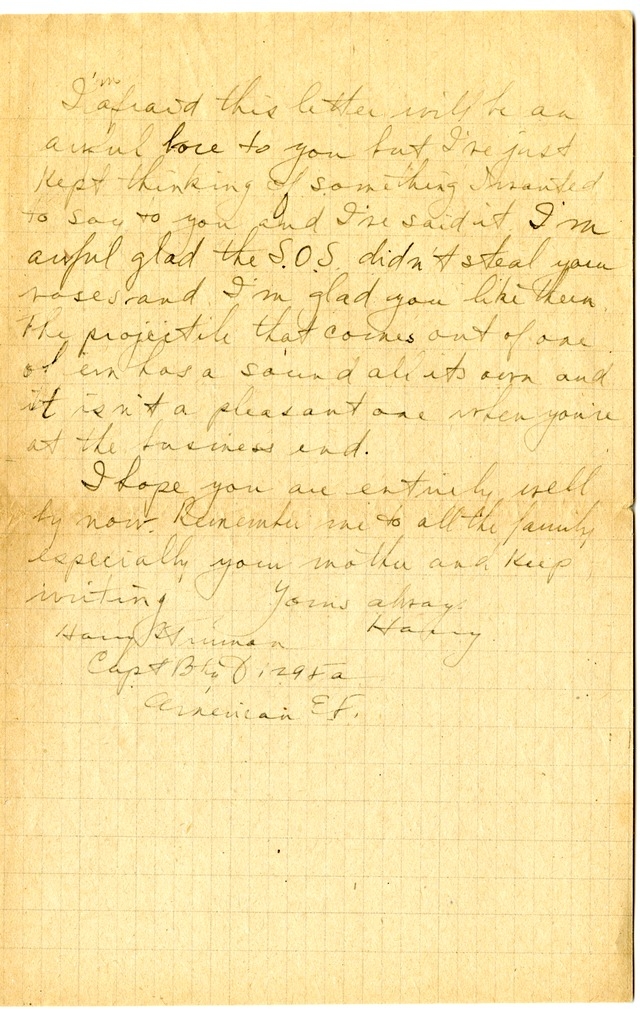 I'm afraid this letter will be an
awful bore to you but I've just
kept thinking of something I wanted
to say to you and I've said it I'm
awful glad the S.O.S. didn't steal your
roses and I'm glad you like them.
The projectile that comes out of one
of em has a sound all its own and
it isn't a pleasant one when you're
at the business end.
I hope you are entirely well
by now. Remember me to all the family
especially your mother and keep
writing Yours always
Harry
Harry S Truman
Capt Bty D 129 F a
American E F.